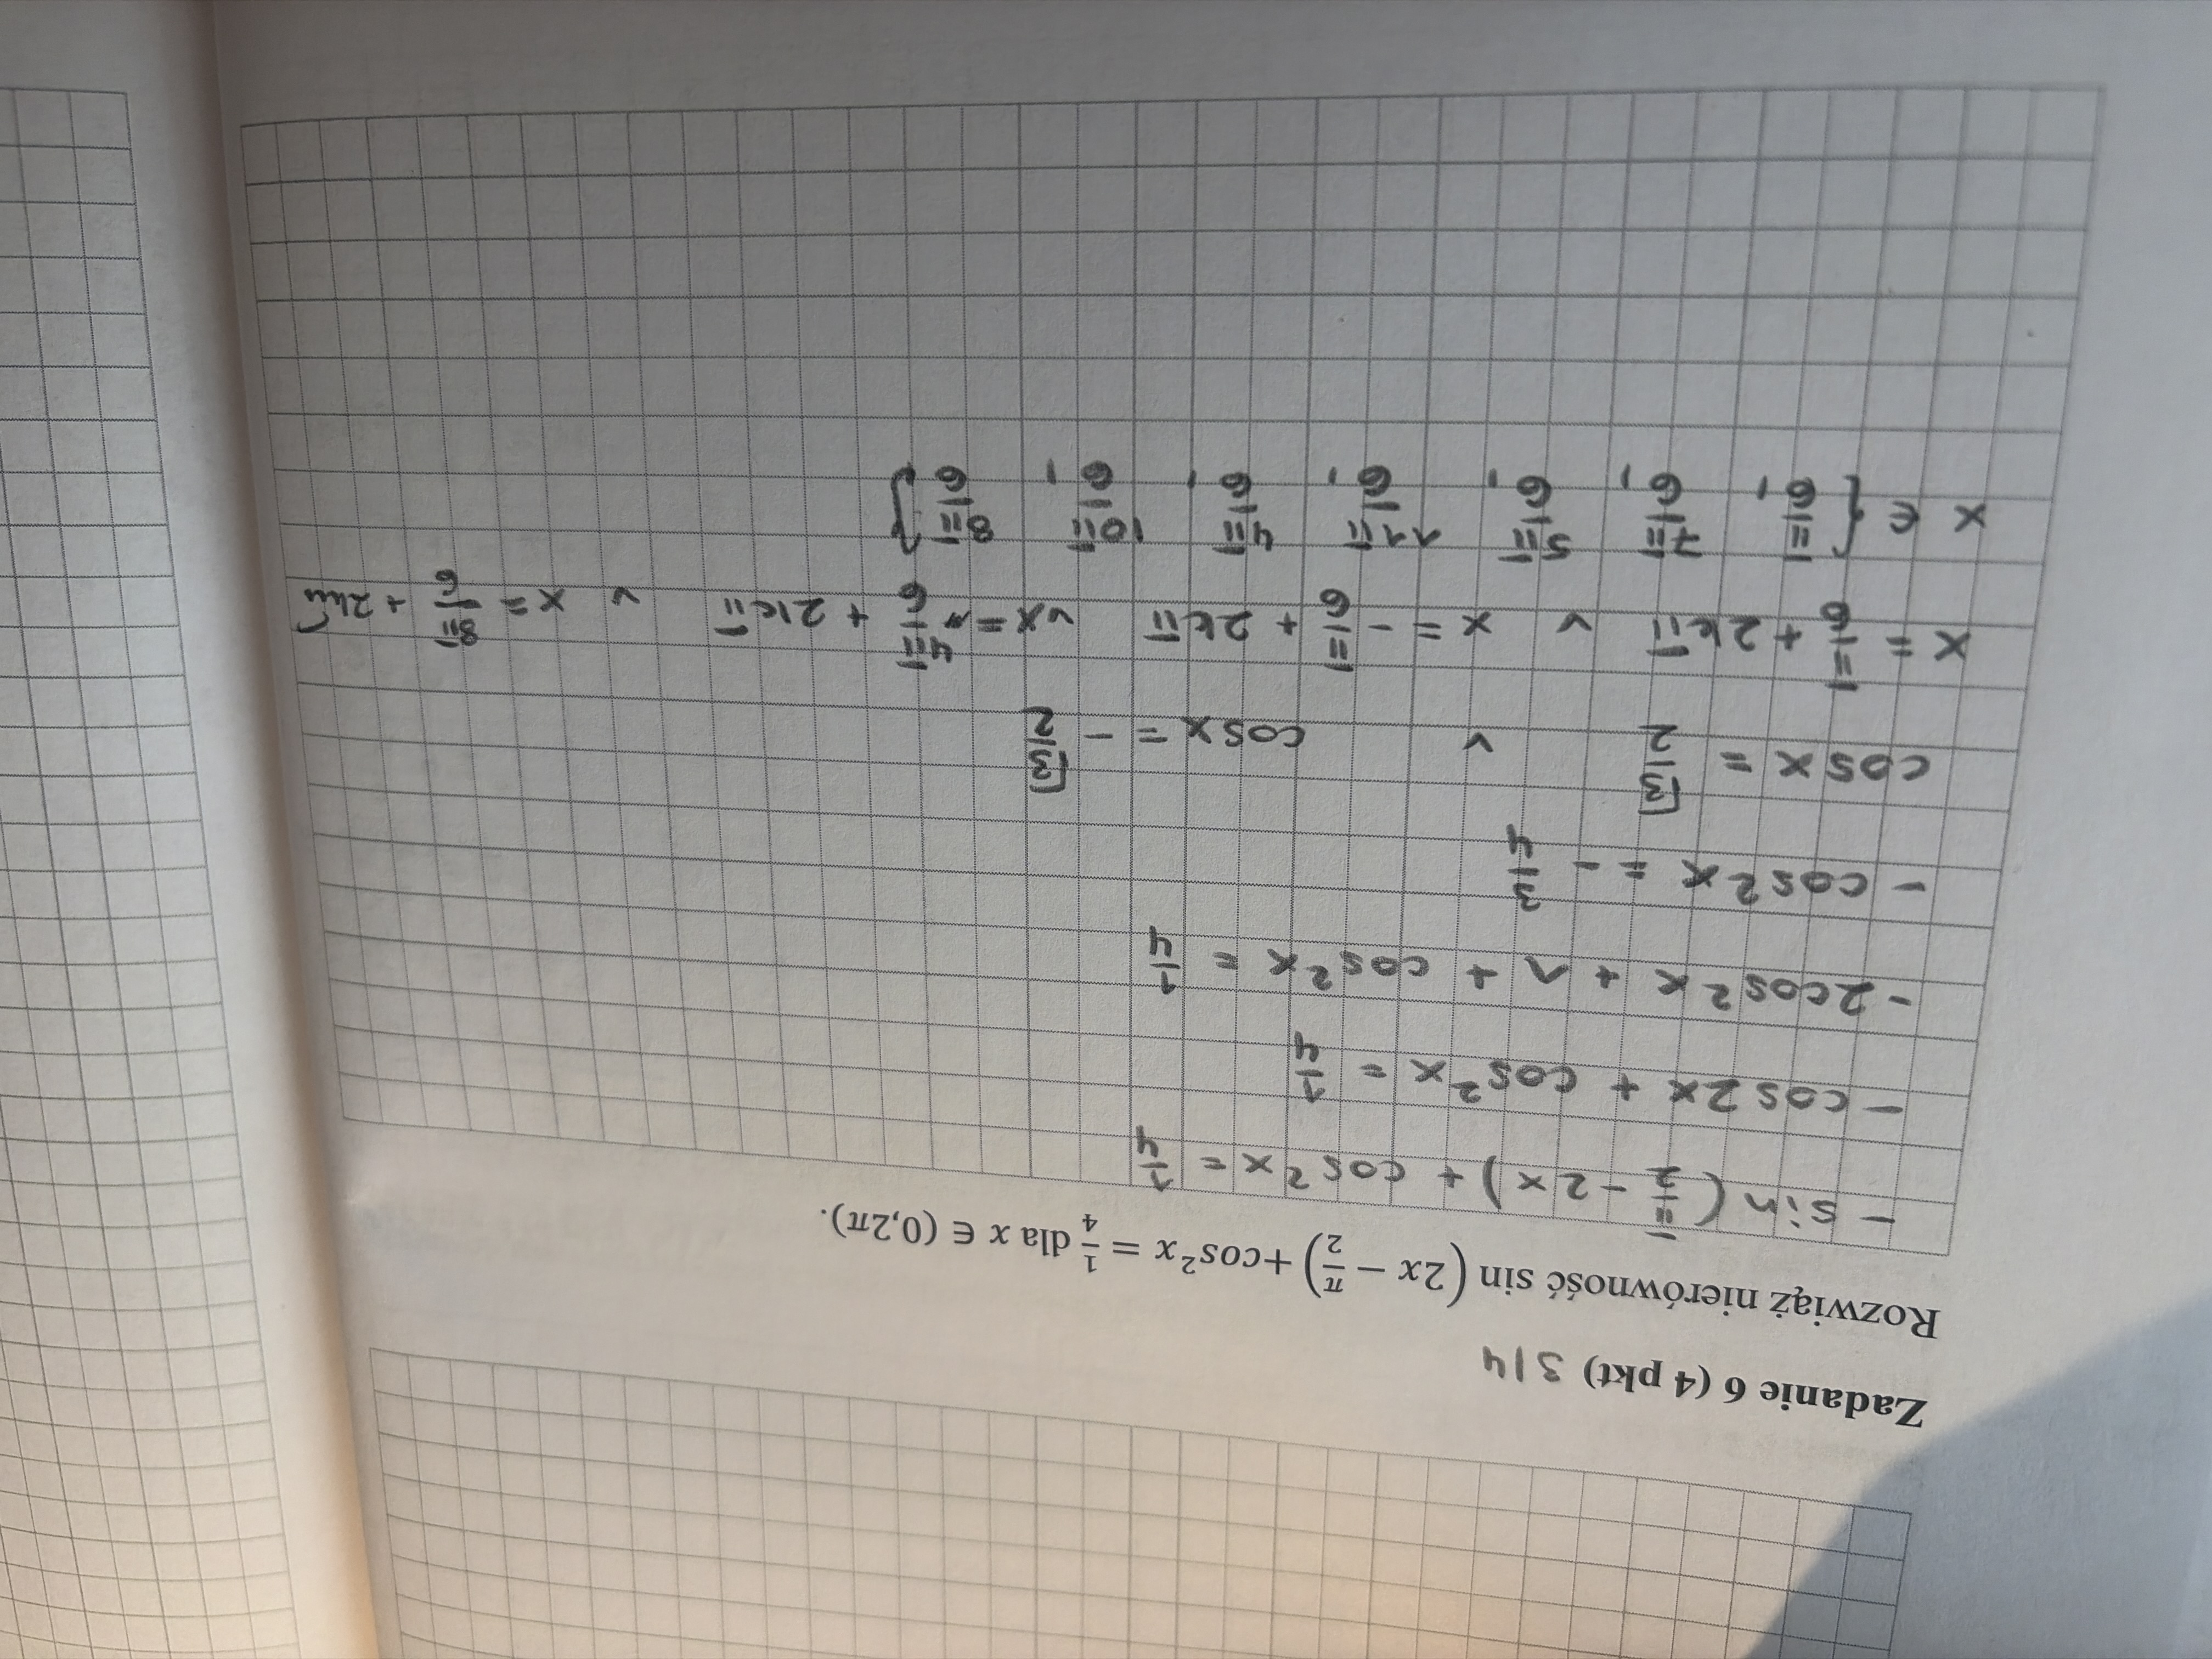 Zadanie 6 (4 pkt) 3/4
Rozwiąż nierówność sin (2x − π/2) + cos²x = 1/4 dla x ∈ (0,2π).
− sin (π/2 − 2x) + cos²x = 1/4
− cos2x + cos²x = 1/4
− 2cos²x + 1 + cos²x = 1/4
− cos²x = − 3/4
cosx = √3/2 ∨ cosx = − √3/2
x = π/6 + 2kπ ∨ x = − π/6 + 2kπ ∨ x = 4π/6 + 2kπ ∨ x = 8π/6 + 2kπ
x ∈ { π/6, 7π/6, 5π/6, 11π/6, 4π/6, 10π/6, 8π/6 }